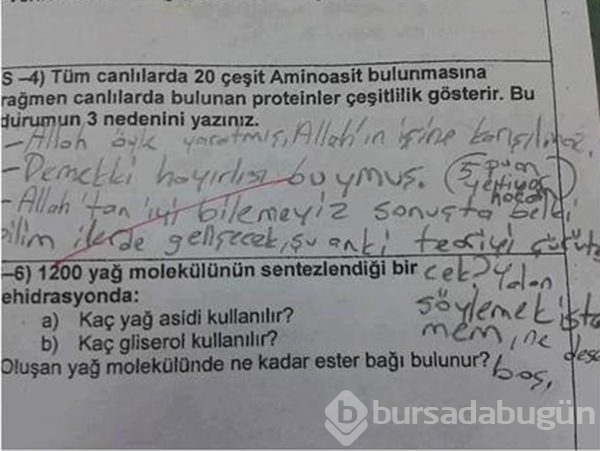 S-4) Tüm canlılarda 20 çeşit Aminoasit bulunmasına
rağmen canlılarda bulunan proteinler çeşitlilik gösterir. Bu
durumun 3 nedenini yazınız.
- Allah öyle yaratmış, Allah'ın işine karışılmaz.
- Demekki hayırlısı buymuş. (5 puan
yetiyor
hocam)
- Allah'tan iyi bilemeyiz sonuçta belki
bilim ilerde gelişecek, şu anki teoriyi çürüte
cek? Yalan
söylemek iste
mem, ne desem
boş.
-6) 1200 yağ molekülünün sentezlendiği bir
ehidrasyonda:
a) Kaç yağ asidi kullanılır?
b) Kaç gliserol kullanılır?
Oluşan yağ molekülünde ne kadar ester bağı bulunur?
b bursadabugün